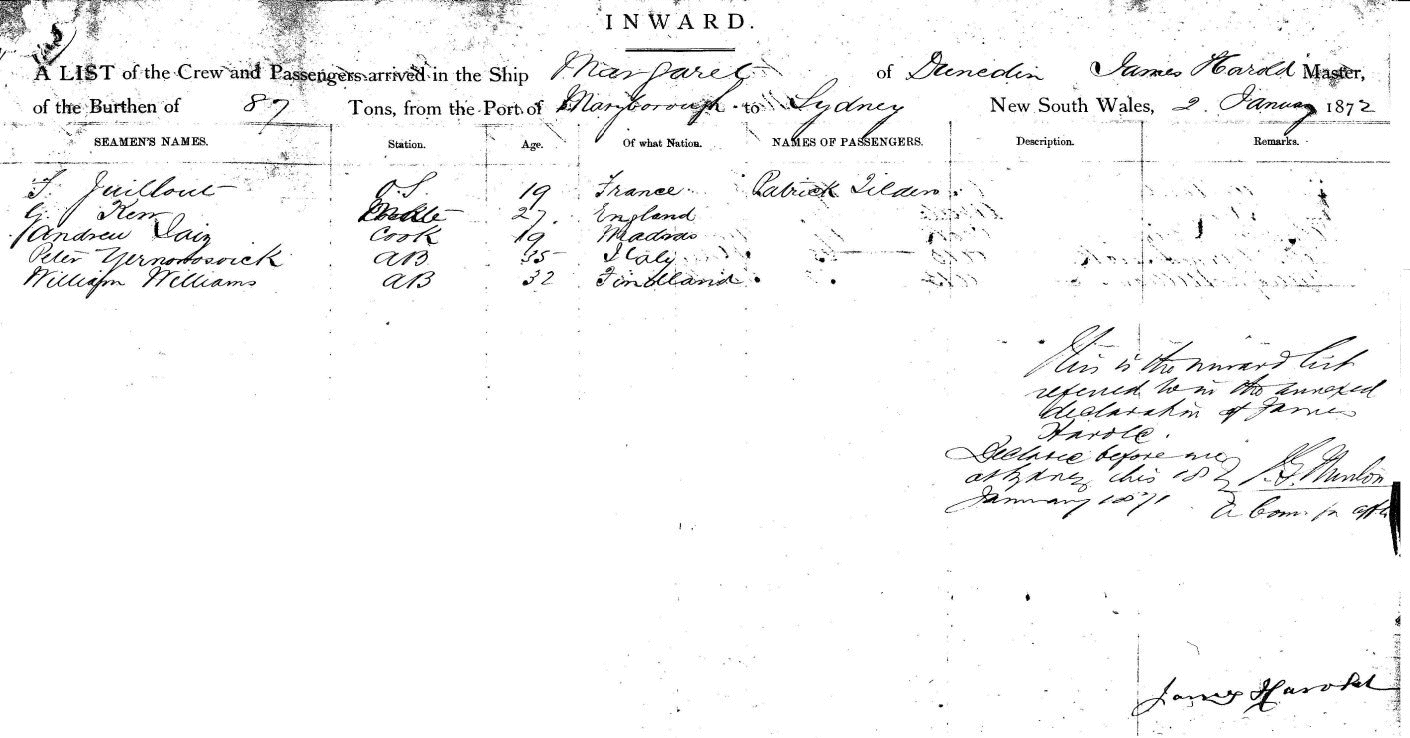 INWARD.
A LIST of the Crew and Passengers arrived in the Ship Margaret of Dunedin James Harold Master,
of the Burthen of 87 Tons, from the Port of Maryborough to Sydney New South Wales, 2 January 1872
SEAMEN'S NAMES. Station. Age. Of what Nation. NAMES OF PASSENGERS. Description. Remarks.
O.S 19 France Patrick Tilden
G. 27. England
Andrew Cook 19 Madras
Peter AB 35 Italy
William Williams AB 32 Findland
This is the inward list
referred to in the annexed
declaration of James
Harold.
Declared before me
at Sydney this 18
January 187
a Com. for
James Harold